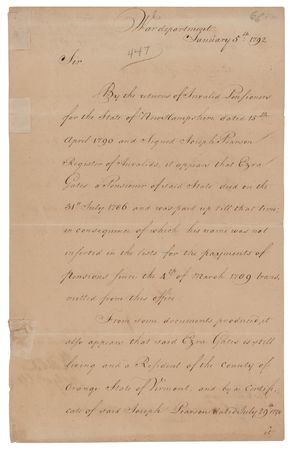 War department
January 5th 1792
447
Sir
By the returns of Invalid Pensioners
for the State of New Hampshire dated 15th
April 1790 and Signed Joseph Pearson
Register of Invalids, it appears that Ezra
Gates a Pensioner of said State died on the
31st July 1786 and was paid up till that time
in consequence of which his name was not
inserted in the lists for the payments of
pensions since the 4th of March 1789 trans,
mitted from this office.
From some documents produced, it
also appears that said Ezra Gates is still
living and a Resident of the County of
Orange State of Vermont, and by a Certifi-
cate of said Joseph Pearson dated July 29th